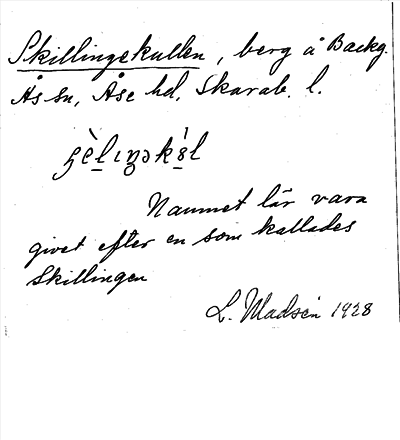 Skillingekullen, berg å Backg.
Ås sn, Åse hd, Skarab. l.
Namnet lär vara
givet efter en som kallades
Skillingen
L. Madsén 1928